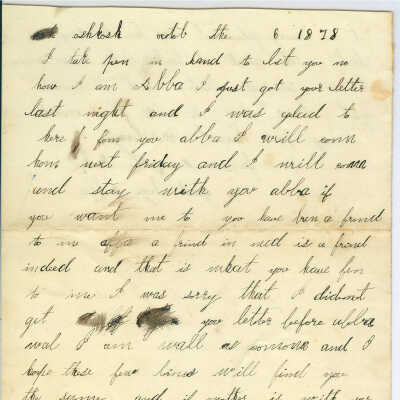 oshkosh octob the 6 1878
I take pen in hand to let you no
how I am Abba I just got your letter
last night and I was glaid to
here fom you abba I will com
hom next friday and I will coma
and stay with you abba if
you want me to you have ben a frind
to me abba a frind in ned is a frand
indeed and that is what you have ben
to me I was sory that I didont
get you letter before abba
wal I am wall as comone and I
hope these few lines will find you
the same and if mother is with you